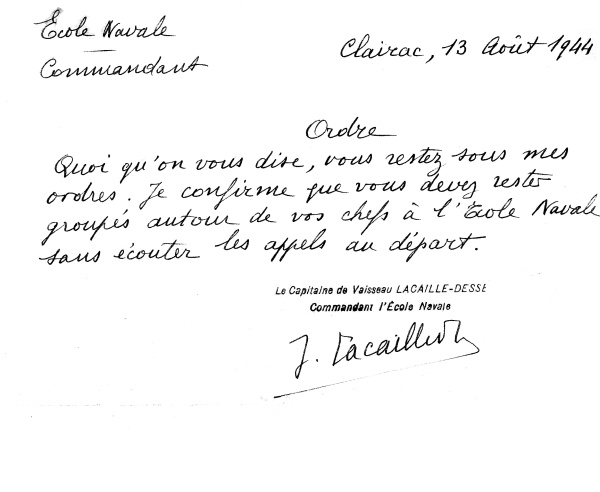 École Navale
Commandant
Clairac, 13 Août 1944
Ordre
Quoi qu'on vous dise, vous restez sous mes
ordres. Je confirme que vous devez rester
groupés autour de vos chefs à l'École Navale
sans écouter les appels au départ.
Le Capitaine de Vaisseau LACAILLE-DESSE
Commandant l'École Navale
J. Lacaille